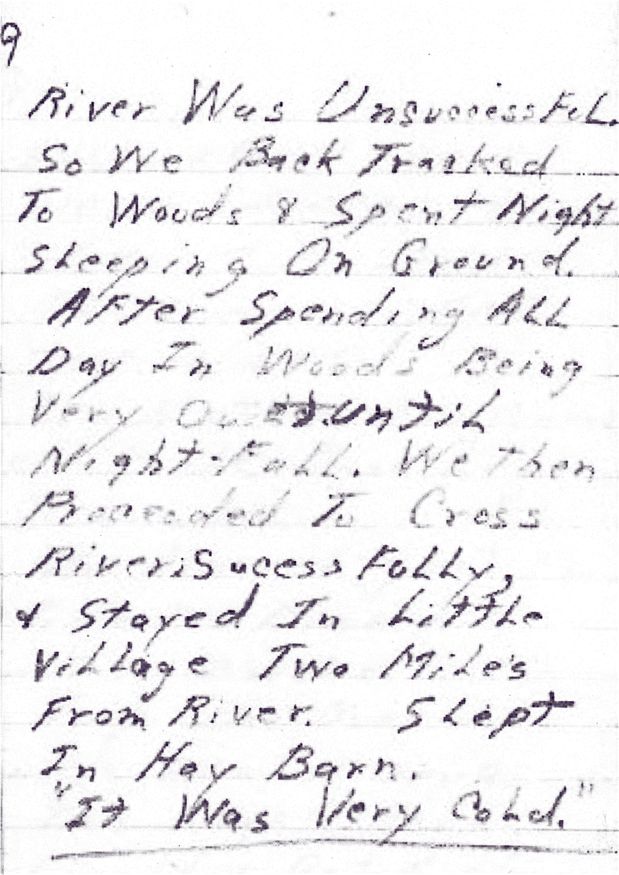 9
River Was UnsuccessFuL.
So We Back Tracked
To Woods & Spent Night
SLeeping On Ground.
AFter Spending ALL
Day In Woods Being
Very Quiet untiL
Night-FaLL. We then
Proceeded To Cross
River, Sucess FuLLy,
& Stayed In LittLe
ViLLage Two MiLe's
From River. SLept
In Hay Barn.
"It Was Very CoLd."